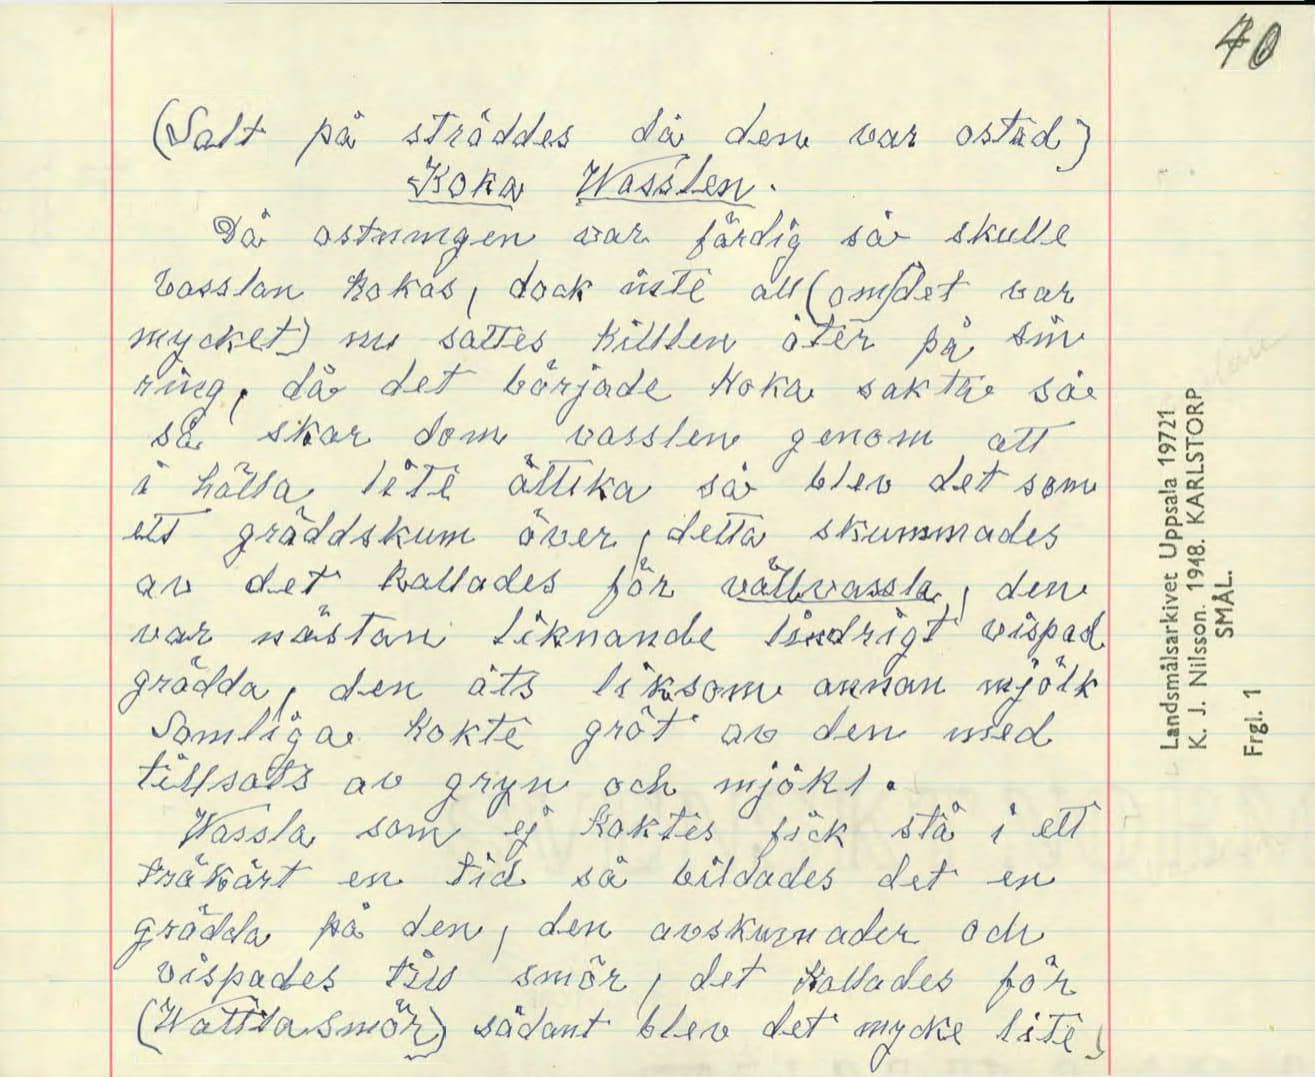 40
(Salt på sträddes då den var ostad)
Koka Wasslen.
Då ostningen var färdig så skulle
vasslan kokas, dock inte all (om det var
mycket) nu sattes kittlen åter på sin
ring, då det började koka sakta så
så skar dom vasslen genom att
i hälla lite ättika så blev det som
ett gräddskum över, detta skummades
av det kallades för vällvassla, den
var nästan liknande lindrigt vispad
grädda, den äts liksom annan mjölk
Somliga kokte gröt av den med
tillsats av gryn och mjökl.
Wassla som ej koktes fick stå i ett
träkärt en tid så bildades det en
grädda på den, den avskumades och
vispades till smör, det kallades för
(Wasslasmör) sådant blev det mycke lite,
Landsmålsarkivet Uppsala 19721
K. J. Nilsson. 1948. KARLSTORP
SMÅL.
Frgl. 1